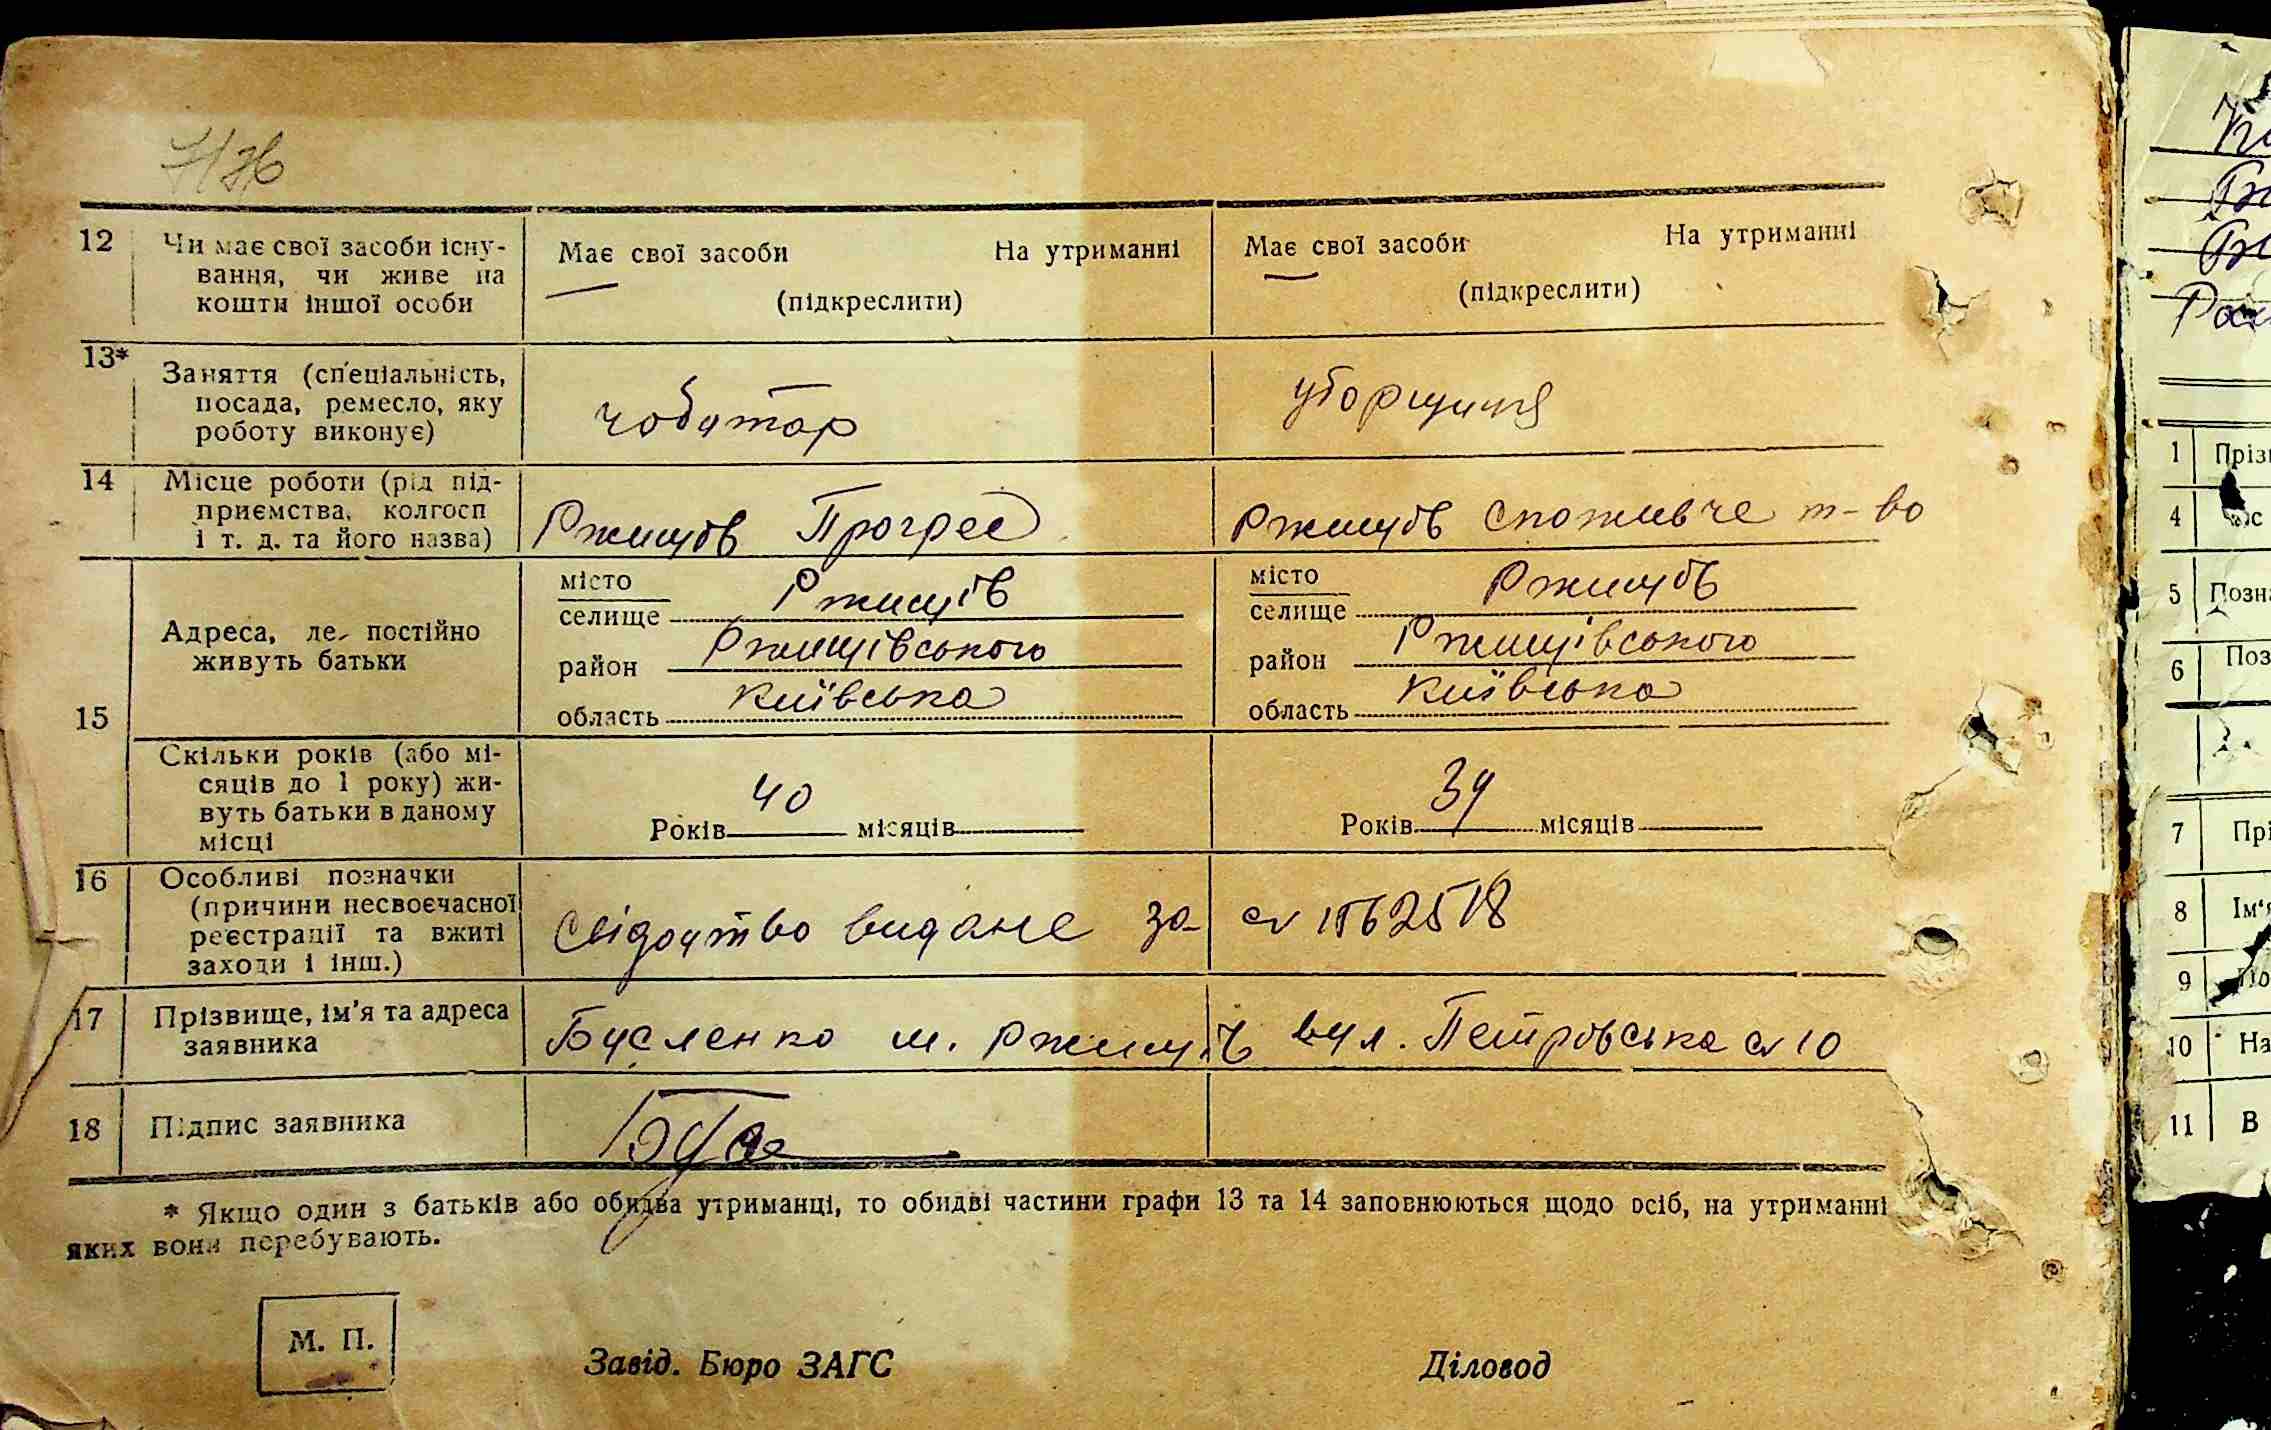 12 Чи має свої засоби існу-
вання, чи живе на
кошти іншої особи
Має свої засоби На утриманні
(підкреслити)
Має свої засоби На утриманні
(підкреслити)
13* Заняття (спеціальність,
посада, ремесло, яку
роботу виконує)
чоботар
уборщиця
14 Місце роботи (рід під-
приємства, колгосп
і т. д. та його назва)
Ржищів Прогрес
Ржищів споживче т-во
15
Адреса, де постійно
живуть батьки
місто
селище Ржищів
район Ржищівського
область Київська
місто
селище Ржищів
район Ржищівського
область Київська
Скільки років (або мі-
сяців до 1 року) жи-
вуть батьки в даному
місці
Років 40 місяців
Років 39 місяців
16 Особливі позначки
(причини несвоєчасної
реєстрації та вжиті
заходи і інш.)
Свідоцтво видане за
17 Прізвище, ім'я та адреса
заявника
Бусленко м. Ржищів вул. Петровська № 10
18 Підпис заявника
* Якщо один з батьків або обидва утриманці, то обидві частини графи 13 та 14 заповнюються щодо осіб, на утриманні
яких вони перебувають.
М. П.
Завід. Бюро ЗАГС Діловод
1
4
5
6
7
8
9
10 На
11 В